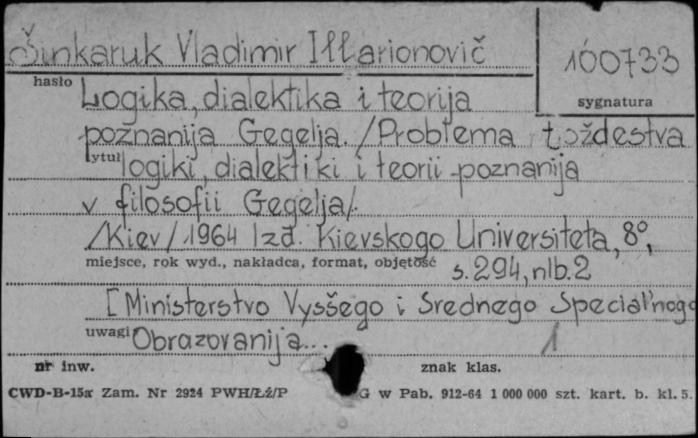 Šinkaruk Vladimir Iłłarionovič
100733
hasło
sygnatura
Logika, dialektika i teorija
poznanija Gegelja. /Probłema toždestva
tytuł logiki, dialektiki i teorii poznanija
v filosofii Gegelja/.
/Kiev/ 1964 Izd. Kievskogo Universiteta, 8°,
miejsce, rok wyd., nakładca, format, objętość
s. 294, nlb. 2
[Ministerstvo Vysšego i Srednego Specialʹnogo
uwagi Obrazovanija...
1
nr inw.
znak klas.
CWD-B-15a Zam. Nr 2924 PWH/Łź/P
G w Pab. 912-64 1 000 000 szt. kart. b. kl. 5.